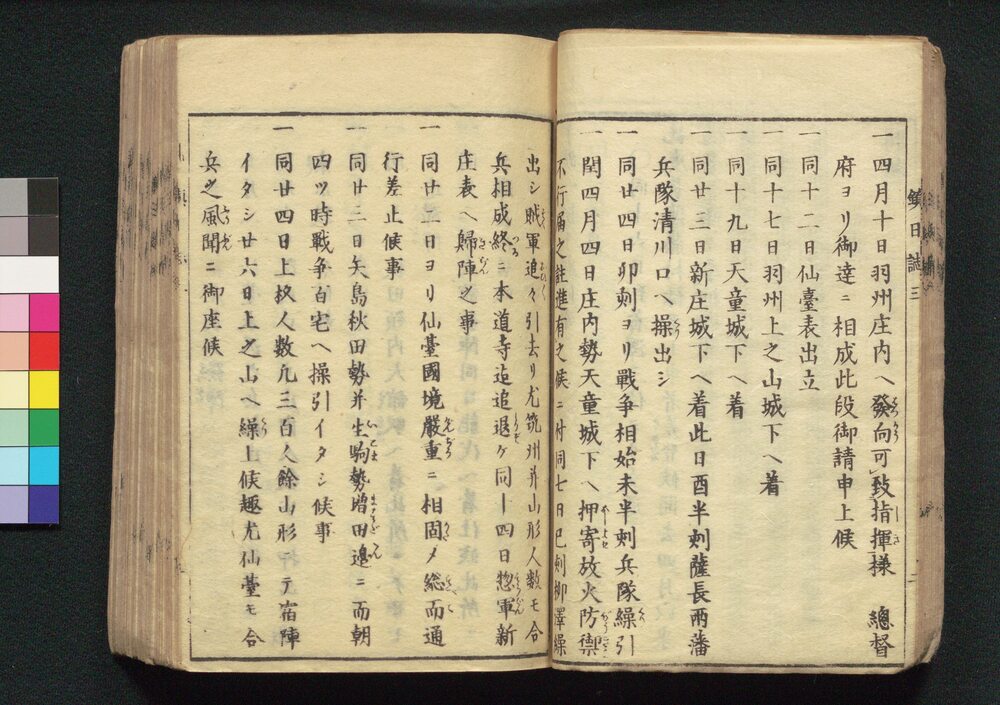 一 四月十日羽州庄内ヘ發向可致指揮様 總督
府ヨリ御達ニ相成此段御請申上候
一 同十二日仙臺表出立
一 同十七日羽州上之山城下ヘ着
一 同十九日天童城下ヘ着
一 同廿三日新庄城下ヘ着此日酉半刻薩長両藩
兵隊清川口ヘ操出シ
一 同廿四日卯刻ヨリ戦争相始未半刻兵隊繰引
一 閏四月四日庄内勢天童城下ヘ押寄放火防禦
不行届之註進有之候ニ付同七日巳刻柳澤繰
出シ賊軍追々引去リ尤筑州并山形人数モ合
兵相成終ニ本道寺迠追退ケ同十四日惣軍新
庄表ヘ歸陣之事
一 同廿二日ヨリ仙臺國境嚴重ニ相固メ総而通
行差止候事
一 同廿三日矢島秋田勢并生駒勢増田邉ニ而朝
四ツ時戦争百宅ヘ操引イタシ候事
一 同廿四日上杦人数凢三百人餘山形ニテ宿陣
イタシ廿六日上之山ヘ繰上候趣尤仙臺モ合
兵之風聞ニ御座候
鎮日誌 三